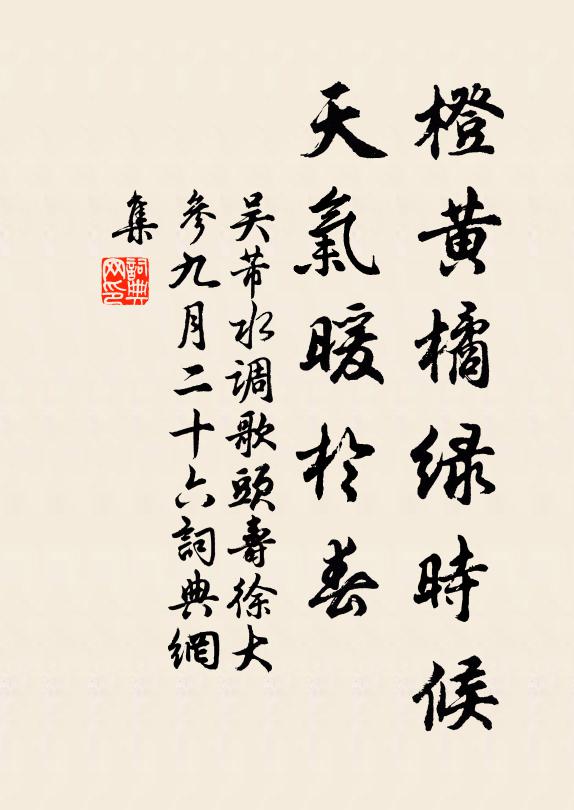 橙黄橘绿時候
天氣暖於春
吴芾水调歌頭壽徐大
參九月二十六詞典網
集
詞典
网印